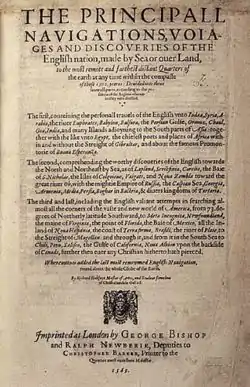 THE PRINCIPALL
NAVIGATIONS, VOIA-
GES AND DISCOVERIES OF THE
English nation, made by Sea or ouer Land,
to the most remote and farthest distant Quarters of
the earth at any time within the compasse
of these 1500. yeeres: Deuided into three
seuerall parts, according to the po-
sitions of the Regions wherun-
to they were directed.
The first, conteining the personall trauels of the English vnto Iudæa, Syria, A-
rabia, the riuer Euphrates, Babylon, Balsara, the Persian Gulfe, Ormuz, Chaul,
Goa, India, and many Islands adioyning to the South parts of Asia: toge-
ther with the like vnto Egypt, the chiefest ports and places of Africa with-
in and without the Streight of Gibraltar, and about the famous Promon-
torie of Buona Esperanza.
The second, comprehending the worthy discoueries of the English towards
the North and Northeast by Sea, as of Lapland, Scrikfinia, Corelia, the Baie
of S. Nicholas, the Isles of Colgoieue, Vaigats, and Noua Zembla toward the
great riuer Ob, with the mightie Empire of Russia, the Caspian Sea, Georgia,
Armenia, Media, Persia, Boghar in Bactria, & diuers kingdoms of Tartaria.
The third and last, including the English valiant attempts in searching al-
most all the corners of the vaste and new world of America, from 73. de-
grees of Northerly latitude Southward, to Meta Incognita, Newfoundland,
the maine of Virginia, the point of Florida, the Baie of Mexico, all the In-
land of Noua Hispania, the coast of Terra firma, Brasill, the riuer of Plate, to
the Streight of Magellan: and through it, and from it in the South Sea to
Chili, Peru, Xalisco, the Gulfe of California, Noua Albion vpon the backside
of Canada, further then euer any Christian hitherto hath pierced.
Whereunto is added the last most renowmed English Nauigation,
round about the whole Globe of the Earth.
By Richard Hakluyt Master of Artes, and Student sometime
of Christ-church in Oxford.
Imprinted at London by GEORGE BISHOP
and RALPH NEWBERIE, Deputies to
CHRISTOPHER BARKER, Printer to the
Queenes most excellent Maiestie.
1589.